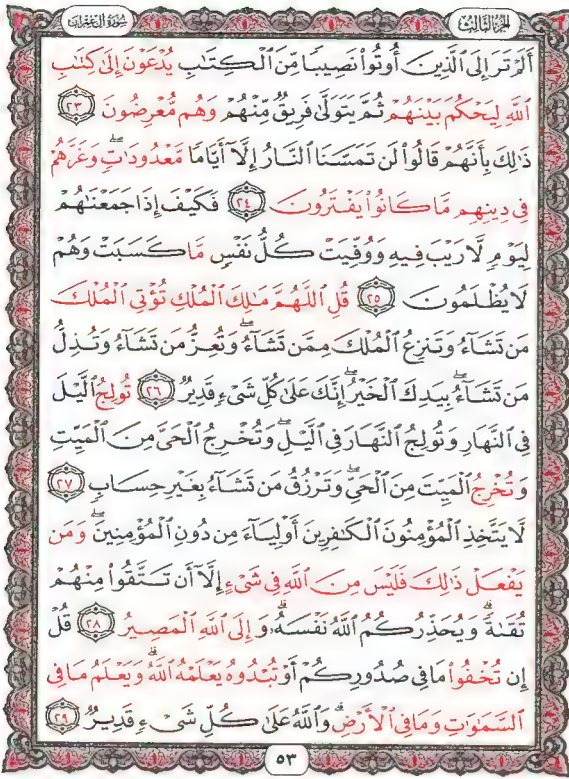 الجزء الثالث
سورة آل عمران
أَلَمْ تَرَ إِلَى ٱلَّذِينَ أُوتُوا۟ نَصِيبًا مِّنَ ٱلْكِتَٰبِ يُدْعَوْنَ إِلَىٰ كِتَٰبِ
ٱللَّهِ لِيَحْكُمَ بَيْنَهُمْ ثُمَّ يَتَوَلَّىٰ فَرِيقٌ مِّنْهُمْ وَهُم مُّعْرِضُونَ ٢٣
ذَٰلِكَ بِأَنَّهُمْ قَالُوا۟ لَن تَمَسَّنَا ٱلنَّارُ إِلَّآ أَيَّامًا مَّعْدُودَٰتٍ ۖ وَغَرَّهُمْ
فِى دِينِهِم مَّا كَانُوا۟ يَفْتَرُونَ ٢٤ فَكَيْفَ إِذَا جَمَعْنَٰهُمْ
لِيَوْمٍ لَّا رَيْبَ فِيهِ وَوُفِّيَتْ كُلُّ نَفْسٍ مَّا كَسَبَتْ وَهُمْ
لَا يُظْلَمُونَ ٢٥ قُلِ ٱللَّهُمَّ مَٰلِكَ ٱلْمُلْكِ تُؤْتِى ٱلْمُلْكَ
مَن تَشَآءُ وَتَنزِعُ ٱلْمُلْكَ مِمَّن تَشَآءُ ۖ وَتُعِزُّ مَن تَشَآءُ وَتُذِلُّ
مَن تَشَآءُ ۖ بِيَدِكَ ٱلْخَيْرُ ۖ إِنَّكَ عَلَىٰ كُلِّ شَىْءٍ قَدِيرٌ ٢٦ تُولِجُ ٱلَّيْلَ
فِى ٱلنَّهَارِ وَتُولِجُ ٱلنَّهَارَ فِى ٱلَّيْلِ ۖ وَتُخْرِجُ ٱلْحَىَّ مِنَ ٱلْمَيِّتِ
وَتُخْرِجُ ٱلْمَيِّتَ مِنَ ٱلْحَىِّ ۖ وَتَرْزُقُ مَن تَشَآءُ بِغَيْرِ حِسَابٍ ٢٧
لَّا يَتَّخِذِ ٱلْمُؤْمِنُونَ ٱلْكَٰفِرِينَ أَوْلِيَآءَ مِن دُونِ ٱلْمُؤْمِنِينَ ۖ وَمَن
يَفْعَلْ ذَٰلِكَ فَلَيْسَ مِنَ ٱللَّهِ فِى شَىْءٍ إِلَّآ أَن تَتَّقُوا۟ مِنْهُمْ
تُقَىٰةً ۗ وَيُحَذِّرُكُمُ ٱللَّهُ نَفْسَهُۥ ۗ وَإِلَى ٱللَّهِ ٱلْمَصِيرُ ٢٨ قُلْ
إِن تُخْفُوا۟ مَا فِى صُدُورِكُمْ أَوْ تُبْدُوهُ يَعْلَمْهُ ٱللَّهُ ۗ وَيَعْلَمُ مَا فِى
ٱلسَّمَٰوَٰتِ وَمَا فِى ٱلْأَرْضِ ۗ وَٱللَّهُ عَلَىٰ كُلِّ شَىْءٍ قَدِيرٌ ٢٩
٥٣